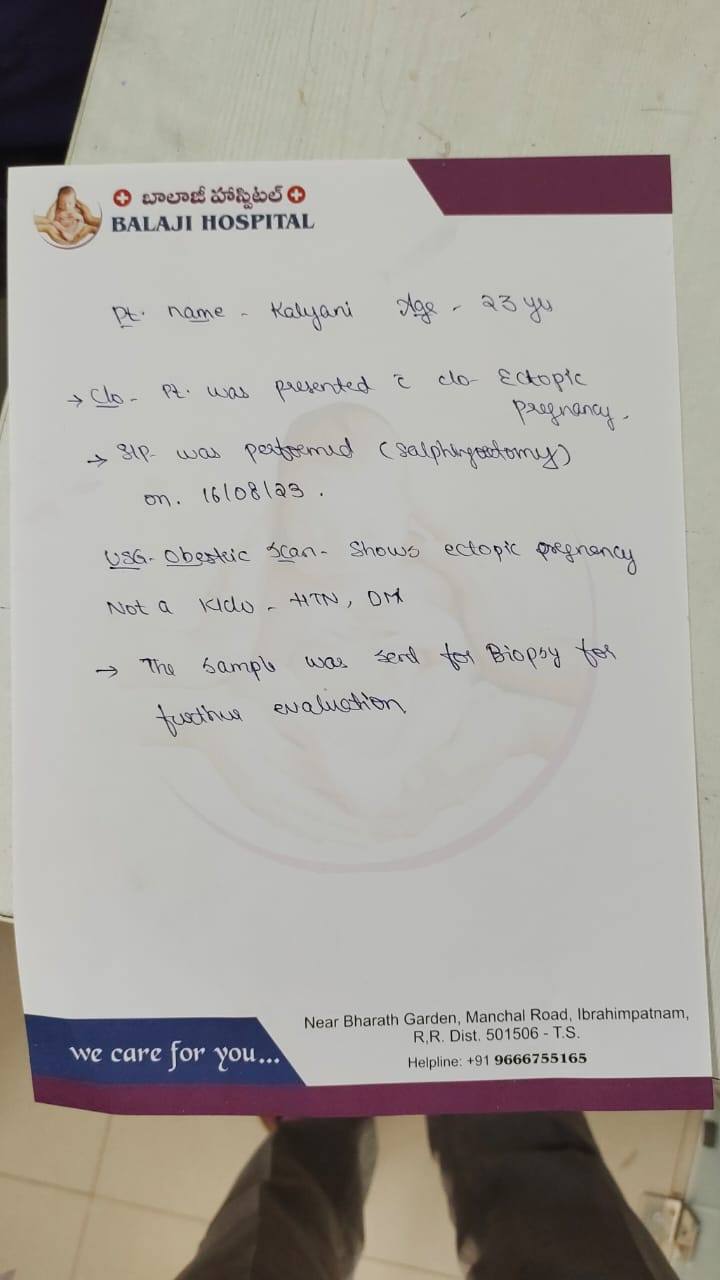 బాలాజీ హాస్పిటల్
BALAJI HOSPITAL
Pt. name - Kalyani Age - 23 yrs
→ C/o - Pt. was presented c̄ c/o - Ectopic
pregnancy.
→ SIP - was performed (Salphingostomy)
on. 16/08/23.
USG - Obestric scan - Shows ectopic pregnancy
Not a K/c/o - HTN, DM
→ The sample was send for Biopsy for
further evaluation
we care for you...
Near Bharath Garden, Manchal Road, Ibrahimpatnam,
R,R. Dist. 501506 - T.S.
Helpline: +91 9666755165